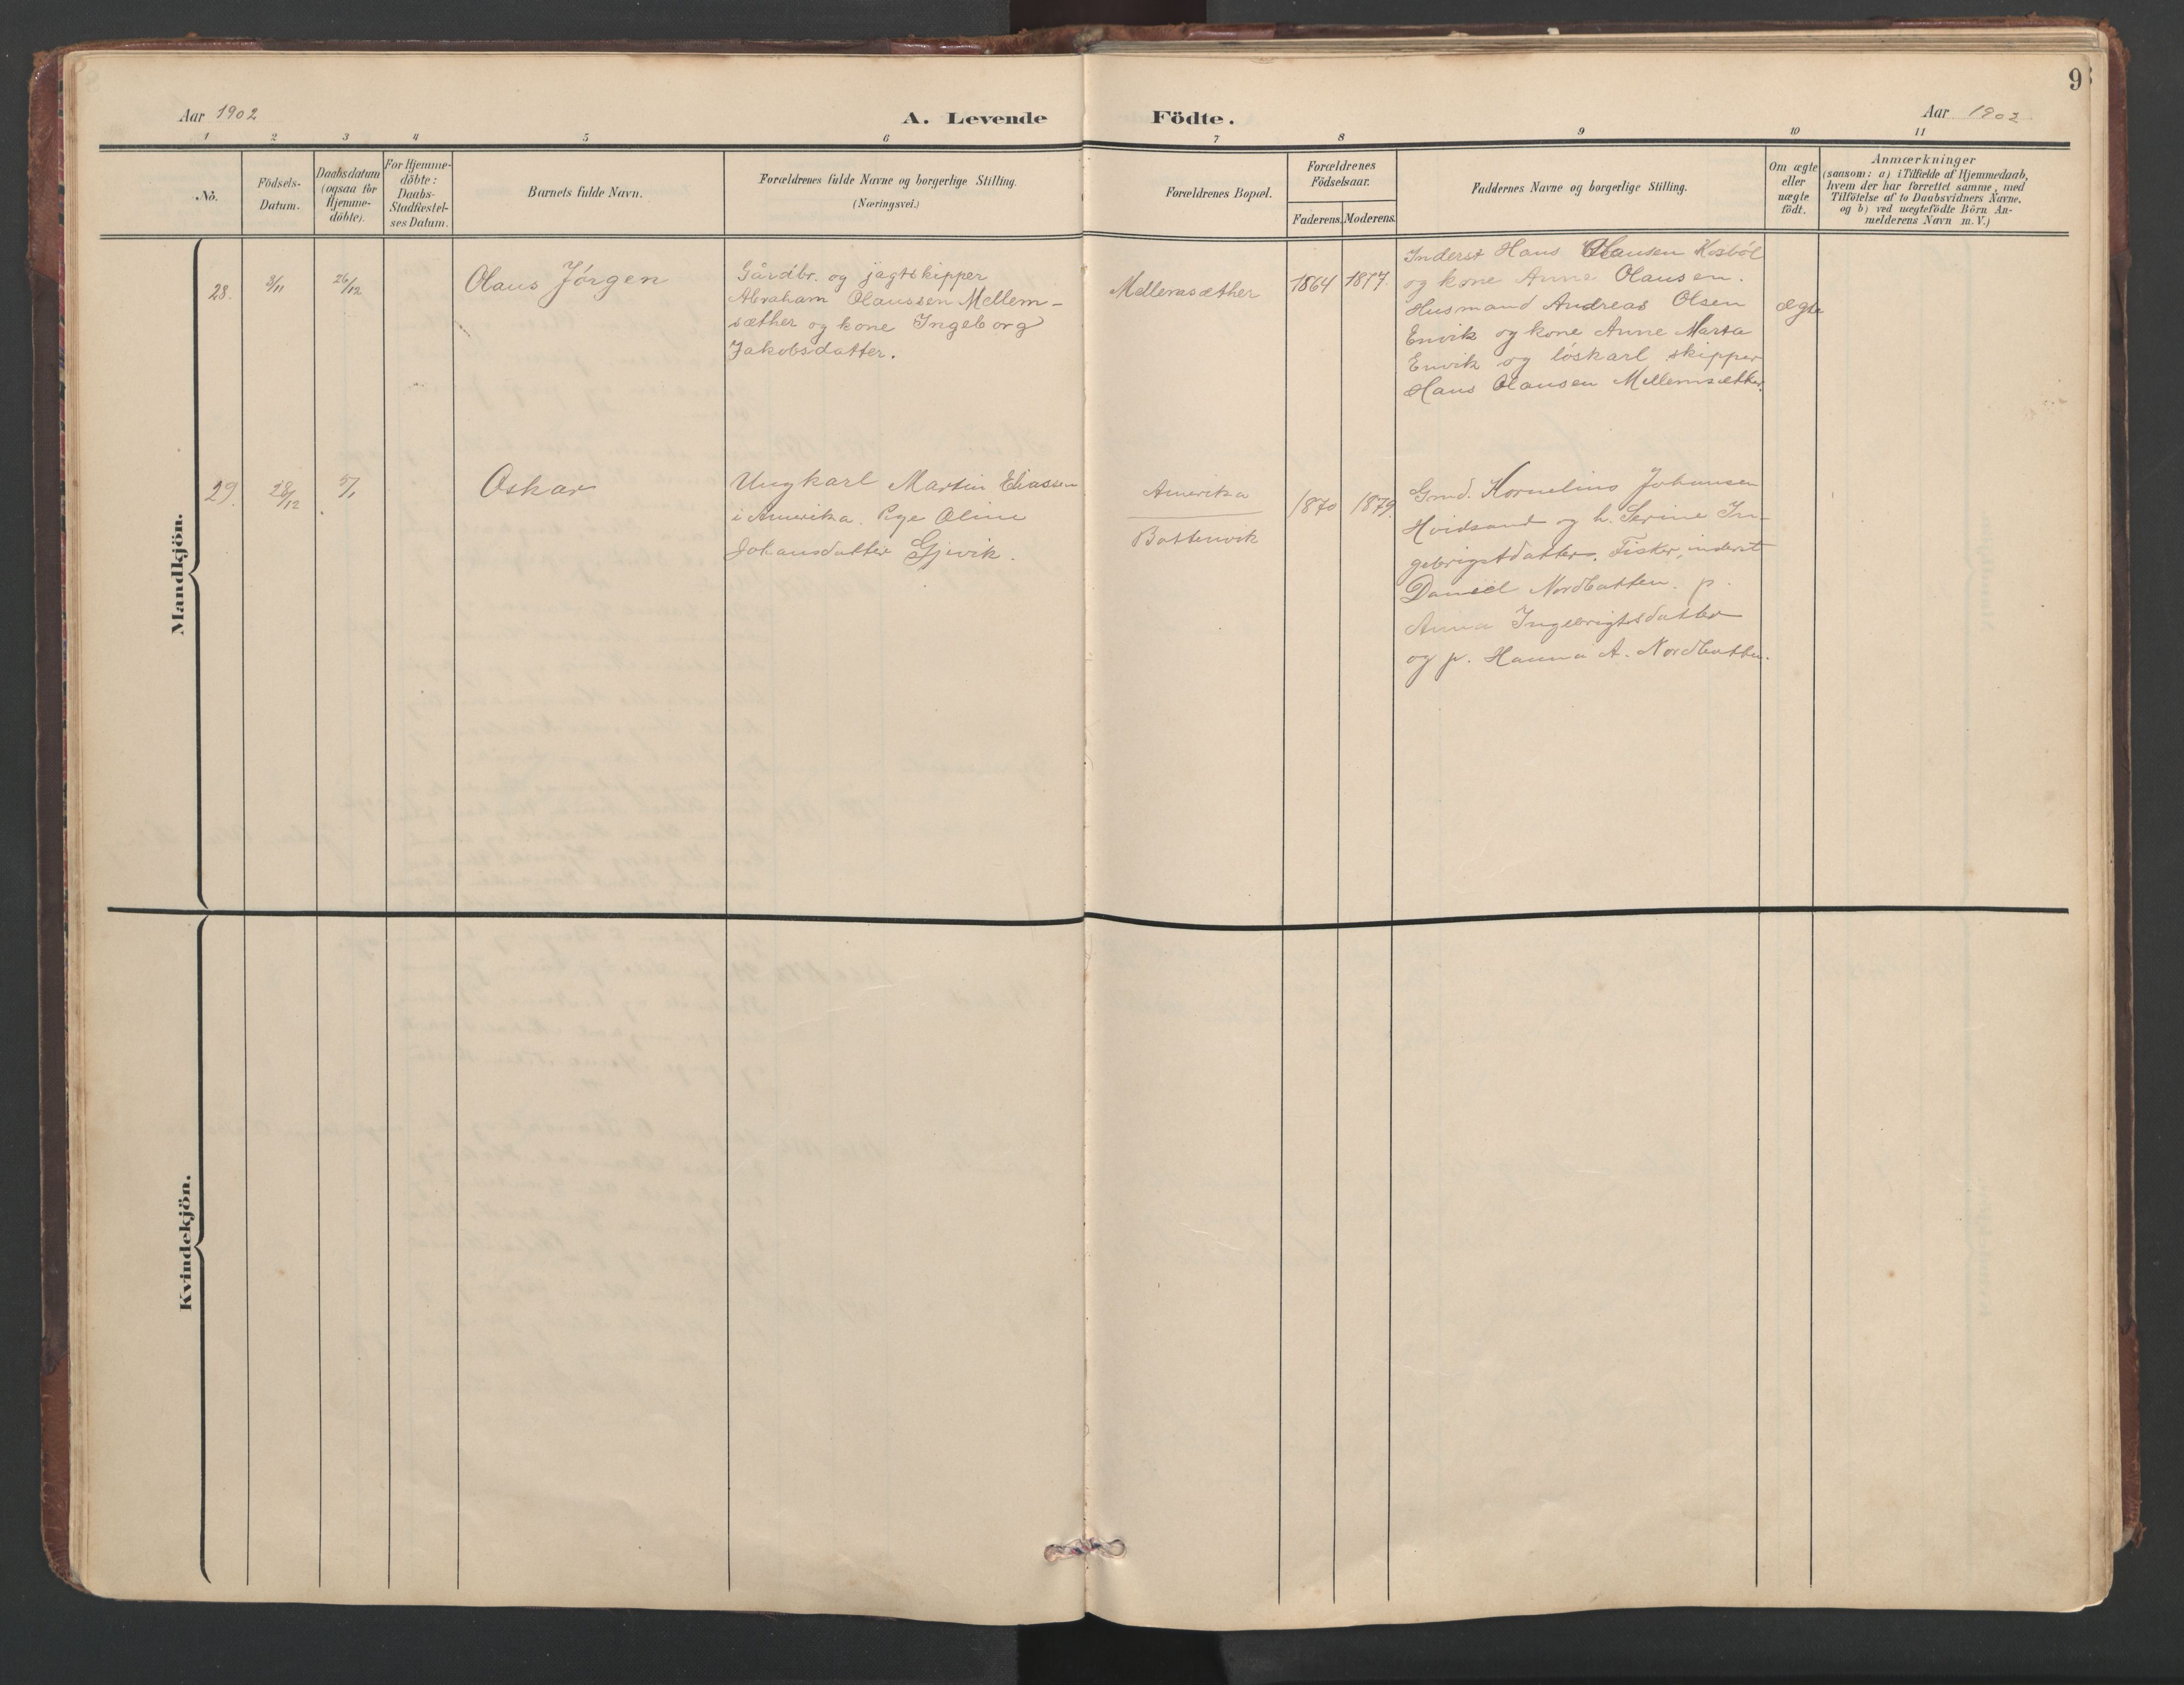 9
Aar 1902
A. Levende Födte.
Aar 1902
1 2 3 4 5 6 7 8 9 10 11
No.
Födsels-
Datum.
Daabsdatum
(ogsaa for
Hjemme-
döbte).
For Hjemme-
döbte:
Daabs-
Stadfæstel-
ses Datum.
Barnets fulde Navn.
Forældrenes fulde Navne og borgerlige Stilling.
(Næringsvei.)
Forældrenes Bopæl.
Forældrenes
Födselsaar.
Faderens. Moderens.
Faddernes Navne og borgerlige Stilling.
Om ægte
eller
uægte
födt.
Anmærkninger
(saasom: a) i Tilfælde af Hjemmedaab,
hvem der har forrettet samme, med
Tilföielse af to Daabsvidners Navne.
og b) ved uægtefödte Börn An-
melderens Navn m. V.)
Mandkjön.
28.
3/11
26/12
Olaus Jörgen
Gårdbr. og jagtskipper
Abraham Olaussen Mellem-
sæther og kone Ingeborg
Jakobsdatter.
Mellemsæther
1864
1877.
Inderst Hans Olausen Kosböl
og kone Anne Olausen.
Husmand Andreas Olsen
Envik og kone Anne Marta
Envik og löskarl skipper
Hans Olausen Mellemsæther.
ægte
29.
28/12
5/1
Oskar
Ungkarl Martin Eliassen
i Amerika. Pige Oline
Johansdatter Gjevik.
Amerika
Battenvik
1870
1879.
Grmd. Kornelius Johansen
Hvidsand og h. Serine In-
gebrigtdatter. Fisker, inderst
Daniel Nordbotten. p.
Anna Ingebrigtsdatter
og p. Hanna A. Nordbotten.
Kvindekjön.